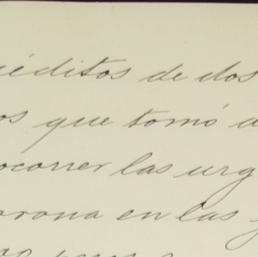 réditos de dos
os que tomó a
ocorrer las urg
orona en las g